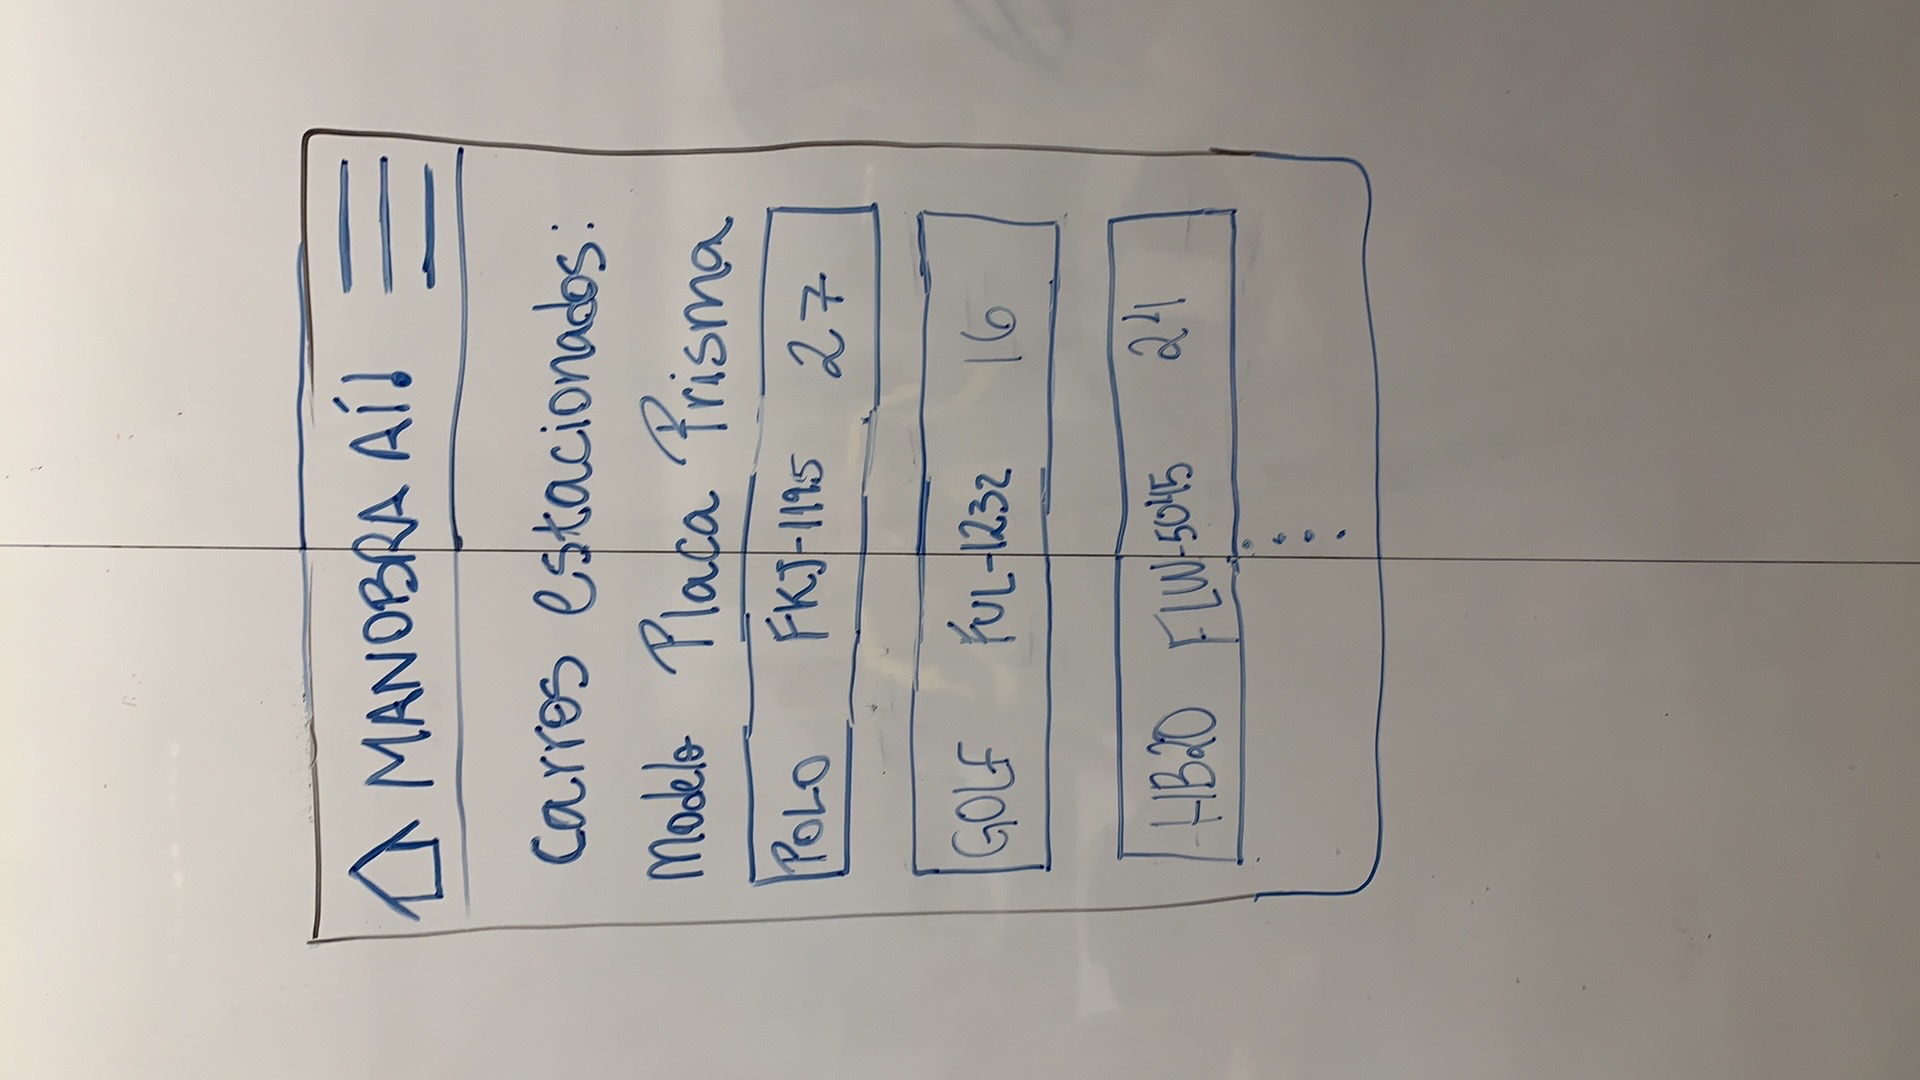 MANOBRA AÍ!
Carros estacionados:
Modelo Placa Prisma
POLO FKJ-1195 27
GOLF FUL-1232 16
HB20 FLW-5045 24